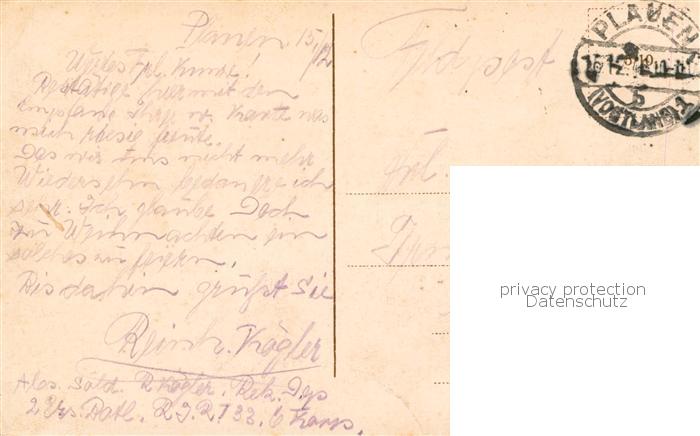 Plauen 15/12
Wertes Frl. Kunze!
Bestätige hiermit den
Empfang Ihrer w. Karte was
mich riesig freute.
Das wir Uns nicht mehr
Wiedersehn bedaure ich
sehr. Ich glaube Doch
zu Weihnachten ein
solches zu feiern.
Bis dahin grüßt Sie
Reinh. Kögler
Abs. Sold. R Kögler. Rek. Dep
2 Ers. Batl. R.I.R. 133. 6 Korps.
Feldpost
Frl.
PLAUEN
(VOGTLAND) 1
b
privacy protection
Datenschutz